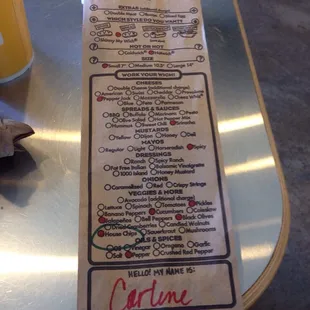 EXTRAS (additional charge)
Double Meat Bacon
WHICH STYLE DO YOU WANTS
Skinny My Wich
HOT OR NOT
Coldwich Hotwich
SIZE
Small 7" Medium 10.5" Large 14"
WORK YOUR Wich!
CHEESES
Double Cheese (additional charge)
American Swiss Cheddar Provolone
Pepper Jack Mozzarella Cheez Whiz
Blue Feta Parmesan
SPREADS & SAUCES
BBQ Buffalo Marinara Pesto
Olive Salad Hot Pepper Mix
Hummus
MUSTARDS
Yellow Dijon Honey Deli
MAYOS
Regular Light Horseradish Spicy
DRESSINGS
Ranch Spicy Ranch
Fat Free Italian Balsamic Vinaigrette
1000 Island Honey Mustard
ONIONS
Caramelized Red Crispy Strings
VEGGIES & MORE
Avocado (additional charge)
Lettuce Spinach Tomatoes Pickles
Banana Peppers Cucumbers Coleslaw
Jalapeños Bell Peppers Black Olives
Dried Cranberries Candied Walnuts
House Chips Sauerkraut Mushrooms
OILS & SPICES
Oil Vinegar Oregano Garlic
Salt Pepper Crushed Red Pepper
HELLO! MY NAME IS:
Carlene